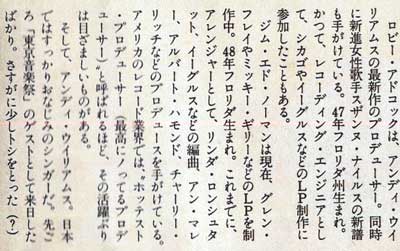 ロビー・アドコックは、アンディ・ウイ
リアムスの最新作のプロデューサー。同時
に新進女性歌手スザンヌ・ナイルスの新譜
も手がけている。47年フロリダ州生まれ。
かつて、レコーディング・エンジニアとし
て、シカゴやイーグルスなどのLP制作に
参加したこともある。
ジム・エド・ノーマンは現在、グレン・
フレイやミッキー・ギリーなどのLPを制
作中。48年フロリダ生まれ。これまでに、
アレンジャーとして、リンダ・ロンシュタ
ット、イーグルスなどの編曲、アン・マレ
ー、アルバート・ハモンド、チャーリー・
リッチなどのプロデュースを手がけている。
アメリカのレコード業界では〝ホッテスト
・プロデューサー(最高にノってるプロデ
ューサー)と呼ばれるほど、その活躍ぶり
は目ざましいものがある。
そして、アンディ・ウイリアムス。日本
ではすっかりおなじみのシンガーだ。先ご
ろ「東京音楽祭」のゲストとして来日した
ばかり。さすがに少しトシをとった(?)